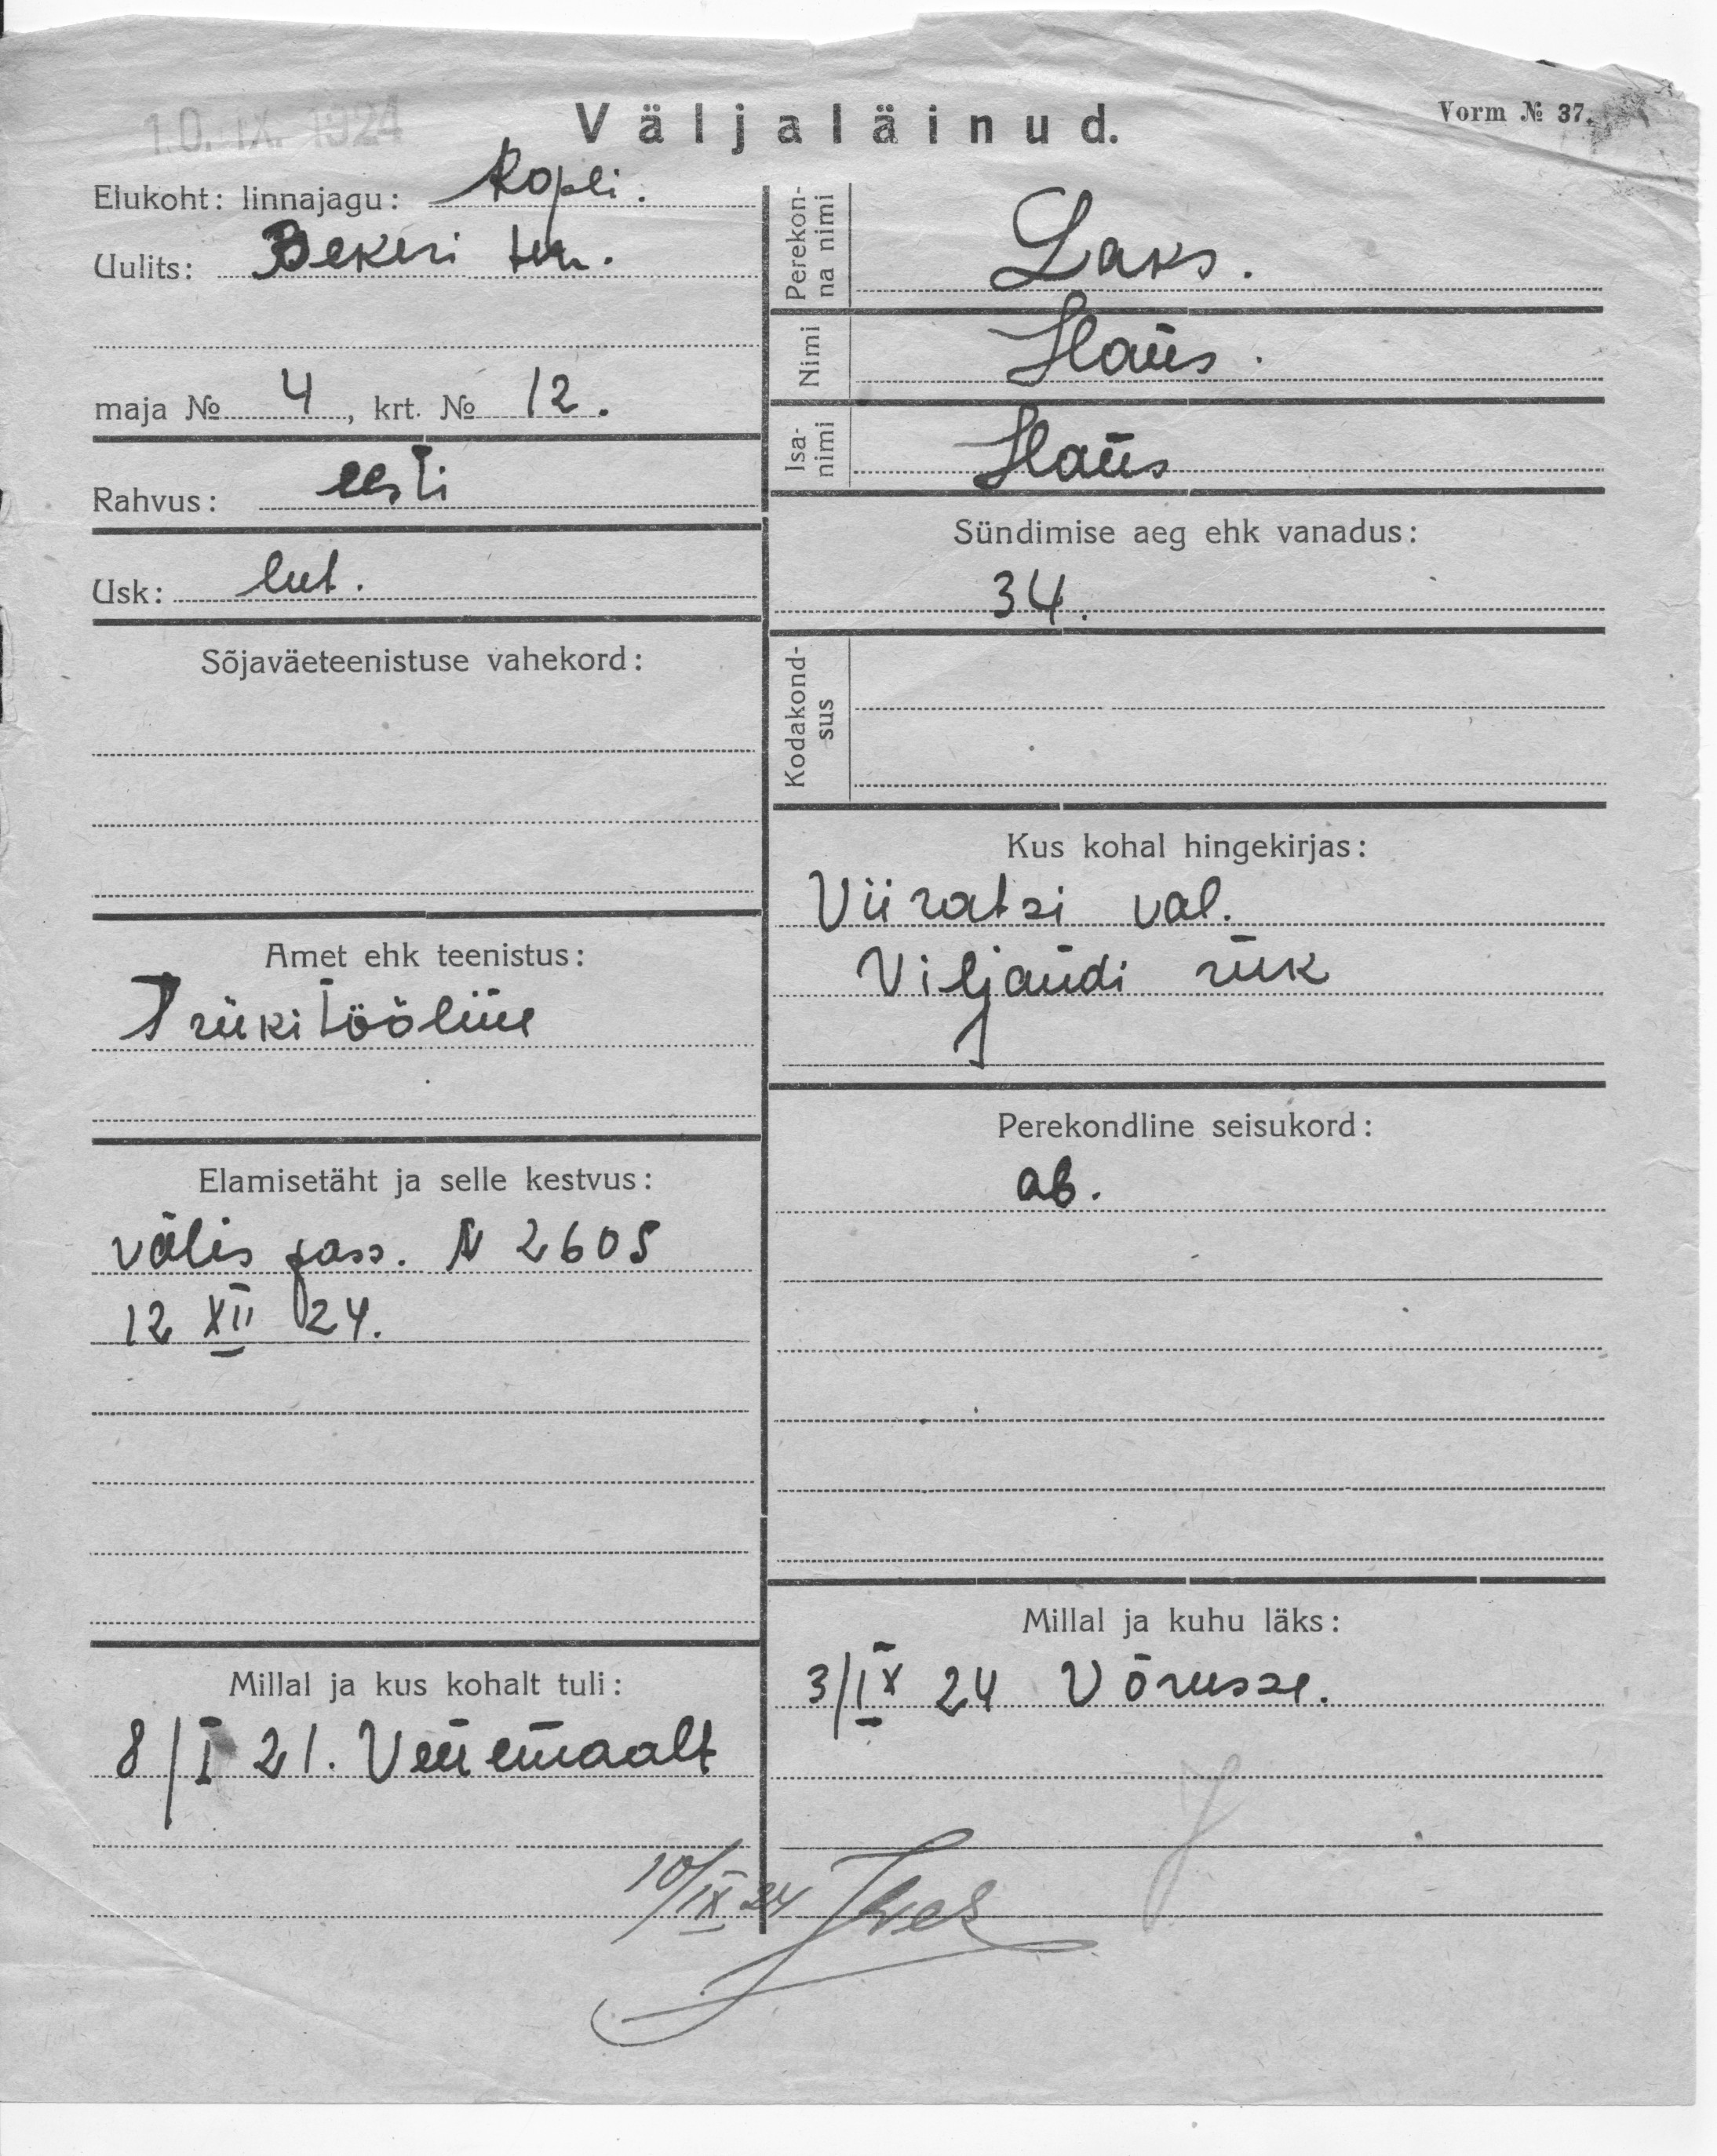 10. IX. 1924
Väljaläinud.
Vorm № 37.
Elukoht: linnajagu: Kopli.
Uulits: Bekeri teh.
maja № 4, krt. № 12.
Rahvus: eesti
Usk: lut.
Sõjaväeteenistuse vahekord:
Amet ehk teenistus:
Trükitööline
Elamisetäht ja selle kestvus:
välis pass. N 2605
12 XII 24.
Millal ja kus kohalt tuli:
8/I 21. Venemaalt
Perekonna nimi
Laks.
Nimi
Hans.
Isanimi
Hans
Sündimise aeg ehk vanadus:
34.
Kodakondsus
Kus kohal hingekirjas:
Viiratsi val.
Viljandi
Perekondline seisukord:
ab.
Millal ja kuhu läks:
3/IX 24 Võrusse.
10/IX 24